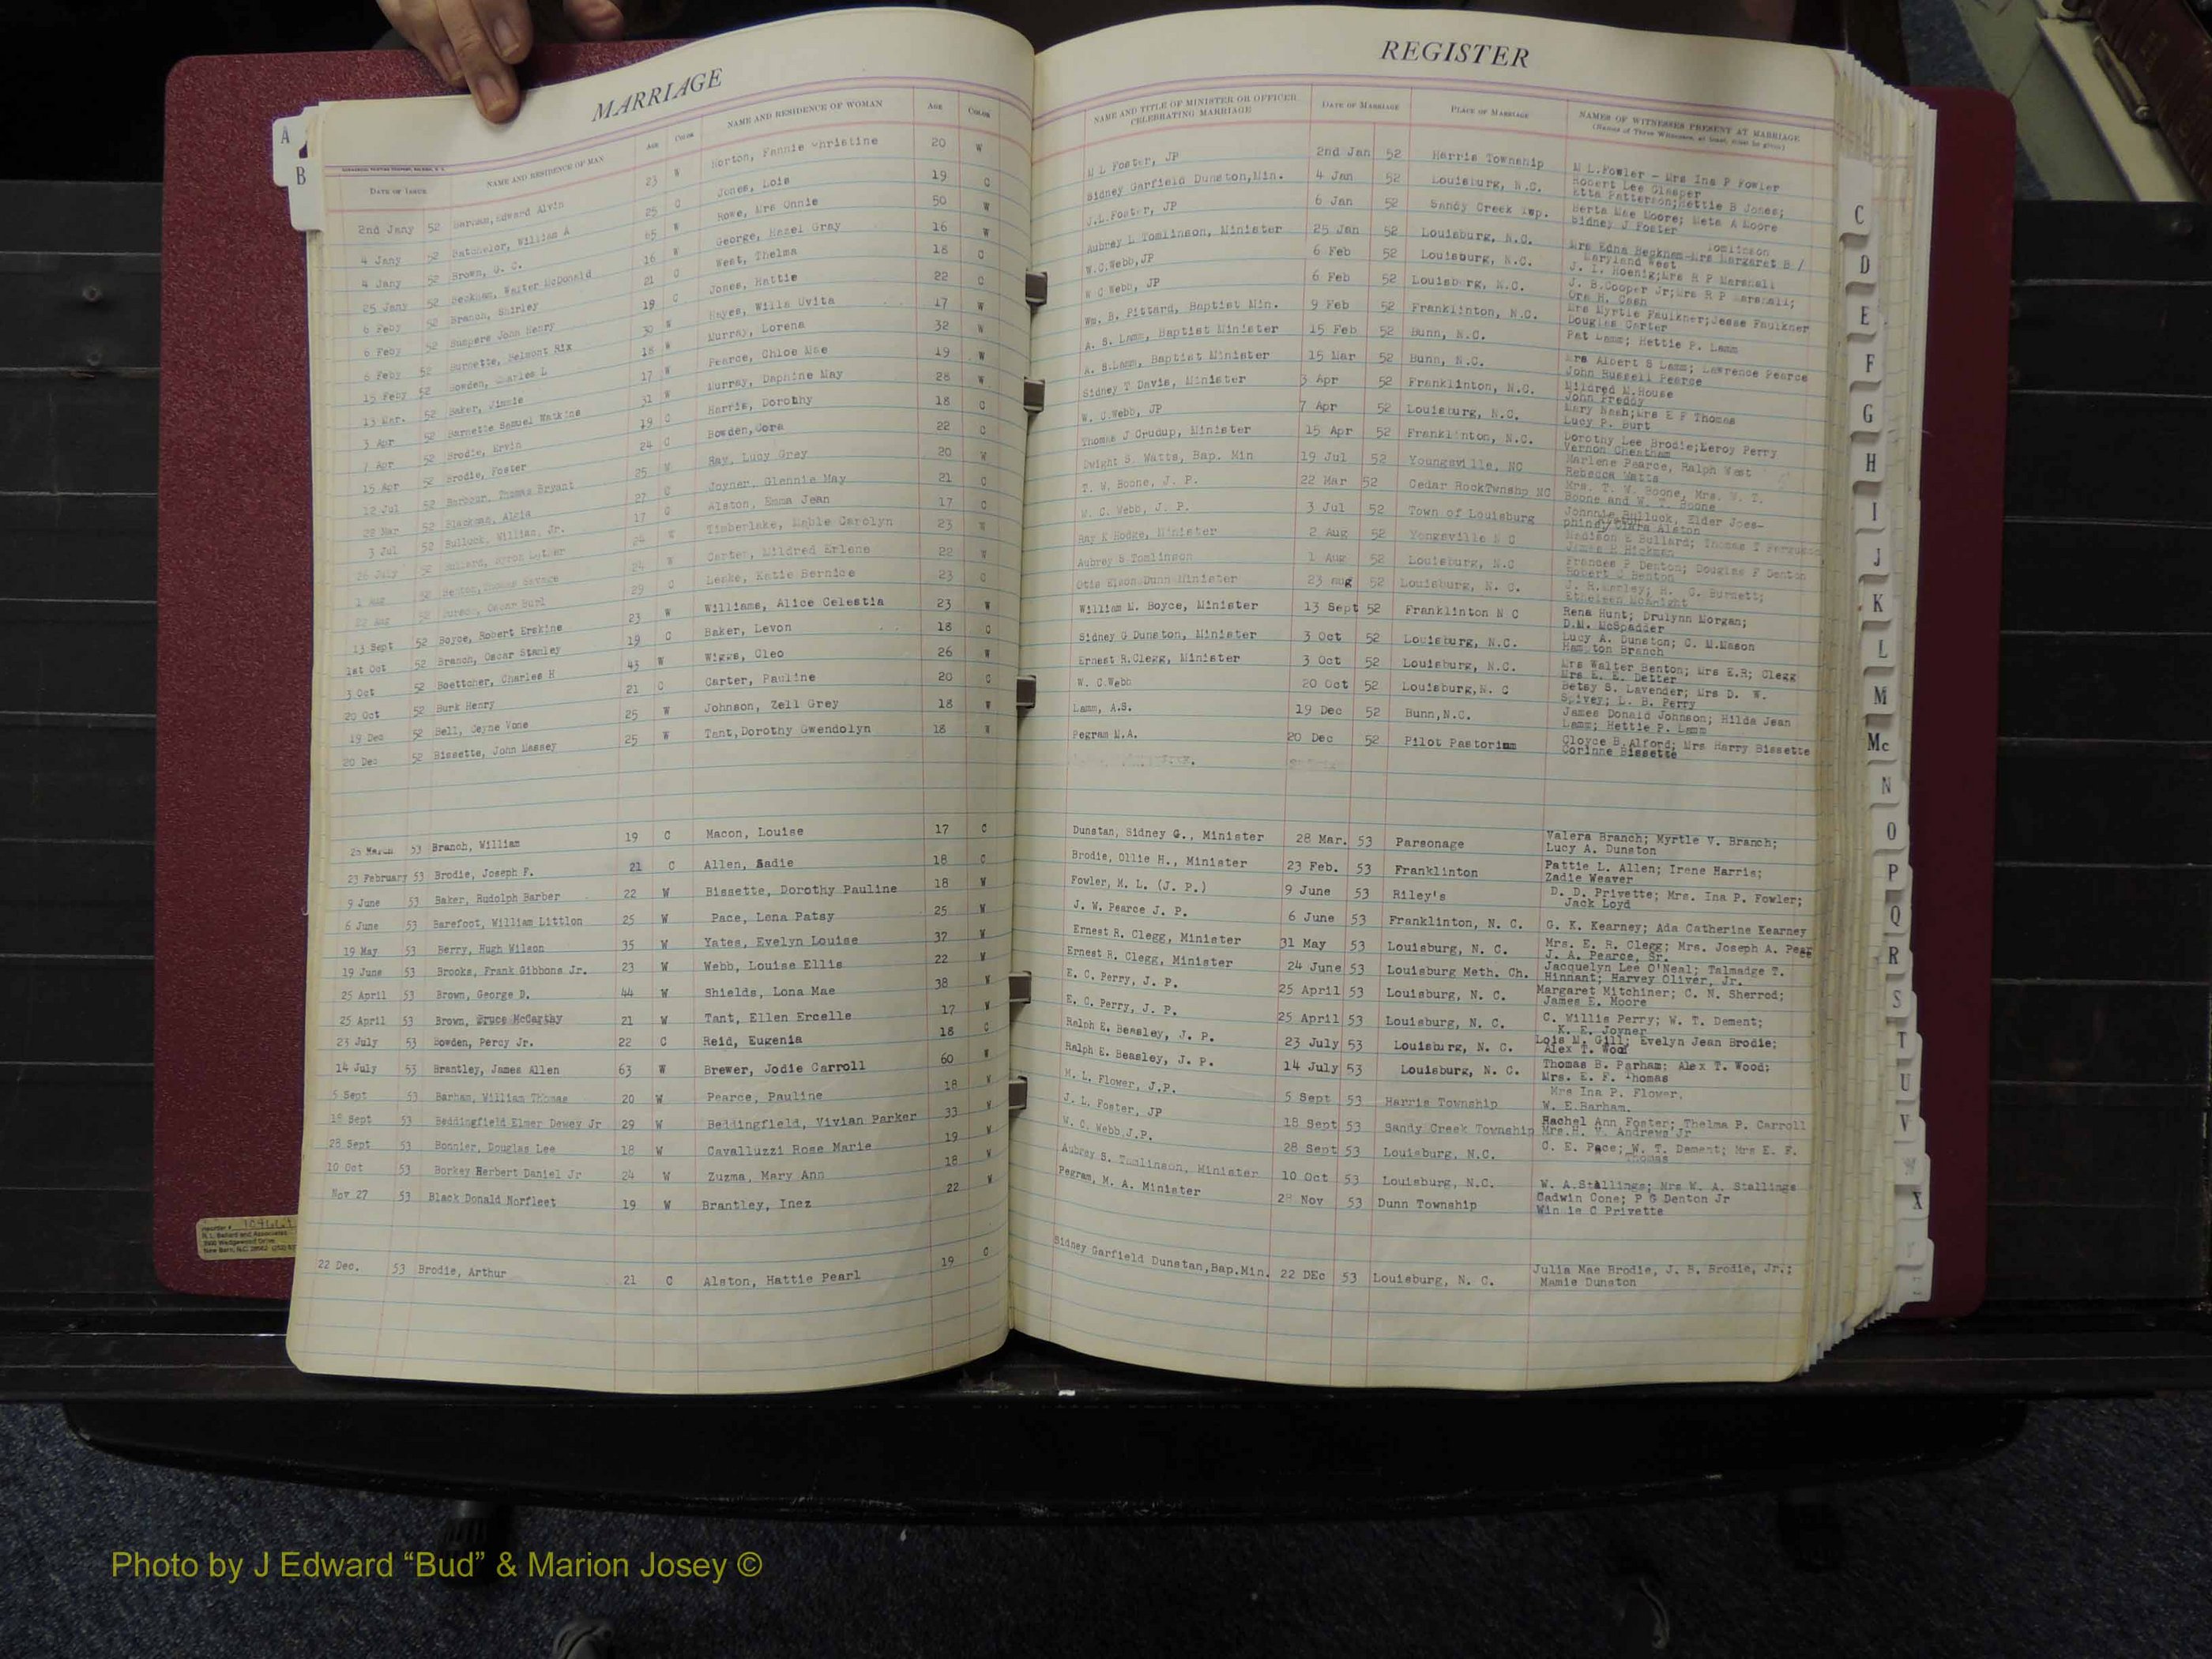 MARRIAGE
REGISTER
DATE OF ISSUE NAME AND RESIDENCE OF MAN AGE COLOR NAME AND RESIDENCE OF WOMAN AGE COLOR NAME AND TITLE OF MINISTER OR OFFICER CELEBRATING MARRIAGE DATE OF MARRIAGE PLACE OF MARRIAGE NAMES OF WITNESSES PRESENT AT MARRIAGE
(Names of Three Witnesses, at least, must be given)
2nd Jany 52 Edward Alvin 23 W Horton, Fannie Christine 20 W M L Foster, JP 2nd Jan 52 Harris Township M L.Fowler - Mrs Ina P Fowler
4 Jany 52 Batchelor, William A 25 C Jones, Lois 19 C Sidney Garfield Dunston,Min. 4 Jan 52 Louisburg, N.C. Robert Lee Glasper
Etta Patterson;Hettie B Jones;
4 Jany 52 Brown, G. C. 65 W Rowe, Mrs Onnie 50 W J.L.Foster, JP 6 Jan 52 Sandy Creek Twp. Berta Mae Moore; Meta A Moore
Sidney J Foster
25 Jany 52 Beckham, Walter McDonald 16 W George, Hazel Gray 16 W Aubrey L Tomlinson, Minister 25 Jan 52 Louisburg, N.C. Mrs Edna Beckham-Mrs Margaret B / Tomlinson
6 Feby 52 Branch, Shirley 21 C West, Thelma 18 C W.C.Webb,JP 6 Feb 52 Louisburg, N.C. Maryland West
J. L. Hoenig;Mrs R P Marshall
6 Feby 52 Bumpers John Henry 19 C Jones, Hattie 22 C W C Webb, JP 6 Feb 52 Louisburg, N.C. J. B.Cooper Jr;Mrs R P Marshall;
Ora H. Cash
6 Feby 52 Burnette, Belmont Rix 30 W Hayes, Willa Uvita 17 W Wm. B. Pittard, Baptist Min. 9 Feb 52 Franklinton, N.C. Mrs Myrtle Faulkner;Jesse Faulkner
Douglas Carter
15 Feby 52 Bowden, Charles L 18 W Murray, Lorena 32 W A. S. Lamm, Baptist Minister 15 Feb 52 Bunn, N.C. Pat Lamm; Hettie P. Lamm
13 Mar. 52 Baker, Jimmie 17 W Pearce, Chloe Mae 19 W A. S.Lamm, Baptist Minister 15 Mar 52 Bunn, N.C. Mrs Albert S Lamm; Lawrence Pearce
John Russell Pearce
3 Apr 52 Burnette Samuel Watkins 31 W Murray, Daphine May 28 W Sidney T Davis, Minister 3 Apr 52 Franklinton, N.C. Mildred M.House
John Freddy
7 Apr 52 Brodie, Ervin 19 C Harris, Dorothy 18 C W. C.Webb, JP 7 Apr 52 Louisburg, N.C. Mary Nash;Mrs E F Thomas
Lucy P. Burt
15 Apr 52 Brodie, Foster 24 C Bowden,Cora 22 C Thomas J Crudup, Minister 15 Apr 52 Franklinton, N.C. Dorothy Lee Brodie;Leroy Perry
Vernon Cheatham
12 Jul 52 Barbour, Thomas Bryant 25 W Ray, Lucy Grey 20 W Dwight S. Watts, Bap. Min 19 Jul 52 Youngsville, NC Marlene Pearce, Ralph West
Rebecca Watts
22 Mar 52 Blackman, Alcia 27 C Joyner, Glennie May 21 C T. W. Boone, J. P. 22 Mar 52 Cedar RockTwnshp NC Mrs. T. W. Boone, Mrs. W. T.
Boone and W. T. Boone
3 Jul 52 Bullock, William, Jr. 17 C Alston, Emma Jean 17 C W. C. Webb, J. P. 3 Jul 52 Town of Louisburg Johnnie Bullock, Elder Joes-
phine/Clara Alston
26 July 52 Bullard, Byron Luther 24 W Timberlake, Mable Carolyn 23 W Ray K Hodge, Minister 2 Aug 52 Yongsville N C Madison E Bullard; Thomas T Ferguson
James P Hickman
1 Aug 52 Benton,Thomas Savage 24 W Carter, Mildred Erlene 22 W Aubrey S Tomlinson 1 Aug 52 Louisburg, N.C Frances P Denton; Douglas F Denton
Robert J Benton
22 Aug 52 Burson, Oscar Burl 29 C Leake, Katie Bernice 23 C Otis Elson Dunn Minister 23 aug 52 Louisburg, N. C. J. R.Easley; H. C. Burnett;
Etheleen McKnight
13 Sept 52 Boyce, Robert Erskine 23 W Williams, Alice Celestia 23 W William M. Boyce, Minister 13 Sept 52 Franklinton N C Rena Hunt; Drulynn Morgan;
D.M. McSpadder
1st Oct 52 Branch, Oscar Stanley 19 C Baker, Levon 18 C Sidney G Dunston, Minister 3 Oct 52 Louisburg, N.C. Lucy A. Dunston; C. M.Mason
Hamilton Branch
3 Oct 52 Boettcher, Charles H 43 W Wiggs, Cleo 26 W Ernest R.Clegg, Minister 3 Oct 52 Louisburg, N.C. Mrs Walter Benton; Mrs E.R; Clegg
Mrs E. E. Detter
20 Oct 52 Burk Henry 21 C Carter, Pauline 20 C W. C.Webb 20 Oct 52 Louisburg,N. C Betsy S. Lavender; Mrs D. W.
Spivey; L. B. Perry
19 Dec 52 Bell, Ceyne Vone 25 W Johnson, Zell Grey 18 W Lamm, A.S. 19 Dec 52 Bunn,N.C. James Donald Johnson; Hilda Jean
Lamm; Hettie P. Lamm
20 Dec 52 Bissette, John Massey 25 W Tant,Dorothy Gwendolyn 18 W Pegram M.A. 20 Dec 52 Pilot Pastorium Cloyce B.Alford; Mrs Harry Bissette
Corinne Bissette
25 March 53 Branch, William 19 C Macon, Louise 17 C Dunstan, Sidney G., Minister 28 Mar. 53 Parsonage Valera Branch; Myrtle V. Branch;
Lucy A. Dunston
23 February 53 Brodie, Joseph F. 21 C Allen, Sadie 18 C Brodie, Ollie H., Minister 23 Feb. 53 Franklinton Pattie L. Allen; Irene Harris;
Zadie Weaver
9 June 53 Baker, Rudolph Barber 22 W Bissette, Dorothy Pauline 18 W Fowler, M. L. (J. P.) 9 June 53 Riley's D. D. Privette; Mrs. Ina P. Fowler;
Jack Loyd
6 June 53 Barefoot, William Littlon 25 W Pace, Lena Patsy 25 W J. W. Pearce J. P. 6 June 53 Franklinton, N. C. G. K. Kearney; Ada Catherine Kearney
19 May 53 Berry, Hugh Wilson 35 W Yates, Evelyn Louise 37 W Ernest R. Clegg, Minister 31 May 53 Louisburg, N. C. Mrs. E. R. Clegg; Mrs. Joseph A. Pear
J. A. Pearce, Sr.
19 June 53 Brooks, Frank Gibbons Jr. 23 W Webb, Louise Ellis 22 W Ernest R. Clegg, Minister 24 June 53 Louisburg Meth. Ch. Jacquelyn Lee O'Neal; Talmadge T.
Hinnant; Harvey Oliver, Jr.
25 April 53 Brown, George D. 44 W Shields, Lona Mae 38 W E. C. Perry, J. P. 25 April 53 Louisburg, N. C. Margaret Mitchiner; C. N. Sherrod;
James E. Moore
25 April 53 Brown, Bruce McCarthy 21 W Tant, Ellen Ercelle 17 W E. C. Perry, J. P. 25 April 53 Louisburg, N. C. C. Willis Perry; W. T. Dement;
K. E. Joyner
23 July 53 Bowden, Percy Jr. 22 C Reid, Eugenia 18 C Ralph E. Beasley, J. P. 23 July 53 Louisburg, N. C. Lois M. Gill; Evelyn Jean Brodie;
Alex T. Wood
14 July 53 Brantley, James Allen 63 W Brewer, Jodie Carroll 60 W Ralph E. Beasley, J. P. 14 July 53 Louisburg, N. C. Thomas B. Parham; Alex T. Wood;
Mrs. E. F. Thomas
5 Sept 53 Barham, William Thomas 20 W Pearce, Pauline 18 W M. L. Flower, J.P. 5 Sept 53 Harris Township Mrs Ina P. Flower,
W. E.Barham.
18 Sept 53 Beddingfield Elmer Dewey Jr 29 W Beddingfield, Vivian Parker 33 W J. L. Foster, JP 18 Sept 53 Sandy Creek Township Rachel Ann Foster; Thelma P. Carroll
Mrs.H. V. Andrews Jr
28 Sept 53 Bonnier, Douglas Lee 18 W Cavalluzzi Rose Marie 19 W W. C. Webb J.P. 28 Sept 53 Louisburg, N.C. C. E. Pace; W. T. Dement; Mrs E. F.
Thomas
10 Oct 53 Borkey Herbert Daniel Jr 24 W Zuzma, Mary Ann 18 W Aubrey S. Tomlinson, Minister 10 Oct 53 Louisburg, N.C. W. A.Stallings; Mrs W. A. Stallings
Nov 27 53 Black Donald Norfleet 19 W Brantley, Inez 22 W Pegram, M. A. Minister 28 Nov 53 Dunn Township Cadwin Cone; P G Denton Jr
Winnie C Privette
22 Dec. 53 Brodie, Arthur 21 C Alston, Hattie Pearl 19 C Sidney Garfield Dunstan,Bap.Min. 22 DEc 53 Louisburg, N. C. Julia Mae Brodie, J. B. Brodie, Jr.;
Mamie Dunston
A
B
C
D
E
F
G
H
I
J
K
L
M
Mc
N
O
P
Q
R
S
T
U
V
W
X
Photo by J Edward “Bud” & Marion Josey ©